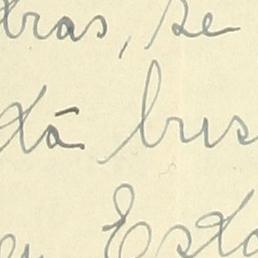 tras, se
tá bus
Esta